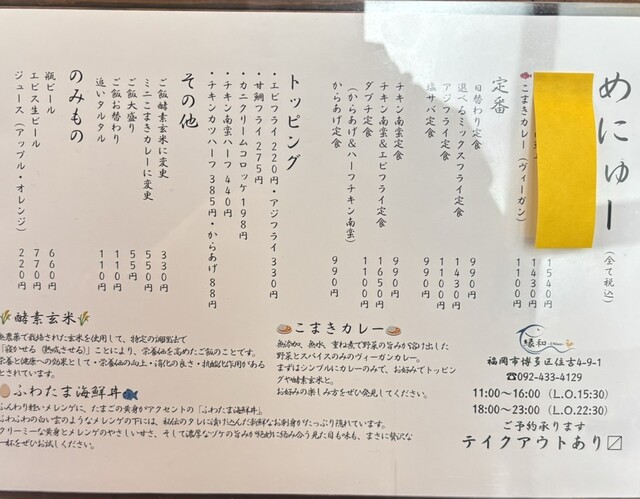 めにゅー(全て税込)
1540円
1430円
こまきカレー(ヴィーガン) 1100円
定番
日替わり定食 1100円
選べるミックスフライ定食 1430円
アジフライ定食 990円
塩サバ定食 990円
チキン南蛮定食 990円
チキン南蛮&エビフライ定食 1650円
ダブチ定食 1100円
(からあげ&ハーフチキン南蛮)
からあげ定食 990円
トッピング
・エビフライ 220円・アジフライ 330円
・甘鯛フライ 275円
・カニクリームコロッケ 198円
・チキン南蛮ハーフ 440円
・チキンカツハーフ 385円・からあげ 88円
その他
ご飯酵素玄米に変更 330円
ミニこまきカレーに変更 550円
ご飯大盛り 55円
ご飯お替わり 110円
追いタルタル 110円
のみもの
瓶ビール 660円
エビス生ビール 770円
ジュース(アップル・オレンジ) 220円
酵素玄米
無農薬で栽培された玄米を使用して、特定の調製法で
「寝かせる(熟成させる)」ことにより、栄養価を高めたご飯のことです。
栄養と健康への効果として・栄養価の向上・消化の良さ・抗酸化作用がある
とされています。
ふわたま海鮮丼
ふんわり軽いメレンゲに、たまごの黄身がアクセントの「ふわたま海鮮丼」。
ふわふわの白い雲のようなメレンゲの下には、秘伝のタレに漬け込んだ新鮮なお刺身がたっぷり隠れています。
クリーミーな黄身とメレンゲのやさしい甘さ、そして濃厚なヅケの旨みが絶妙に絡み合う見た目も味も、まさに贅沢な
一杯をぜひお試しください。
こまきカレー
無添加、無水、重ね煮で野菜の旨みが溶け出した
野菜とスパイスのみのヴィーガンカレー。
まずはシンプルにカレーのみで、お好みでトッピ
ングや酵素玄米と。
お好みの楽しみ方をぜひ発見してください。
縁和
福岡市博多区住吉4-9-1
☎092-433-4129
11:00〜16:00 (L.O.15:30)
18:00〜23:00 (L.O.22:30)
ご予約承ります
テイクアウトあり☑